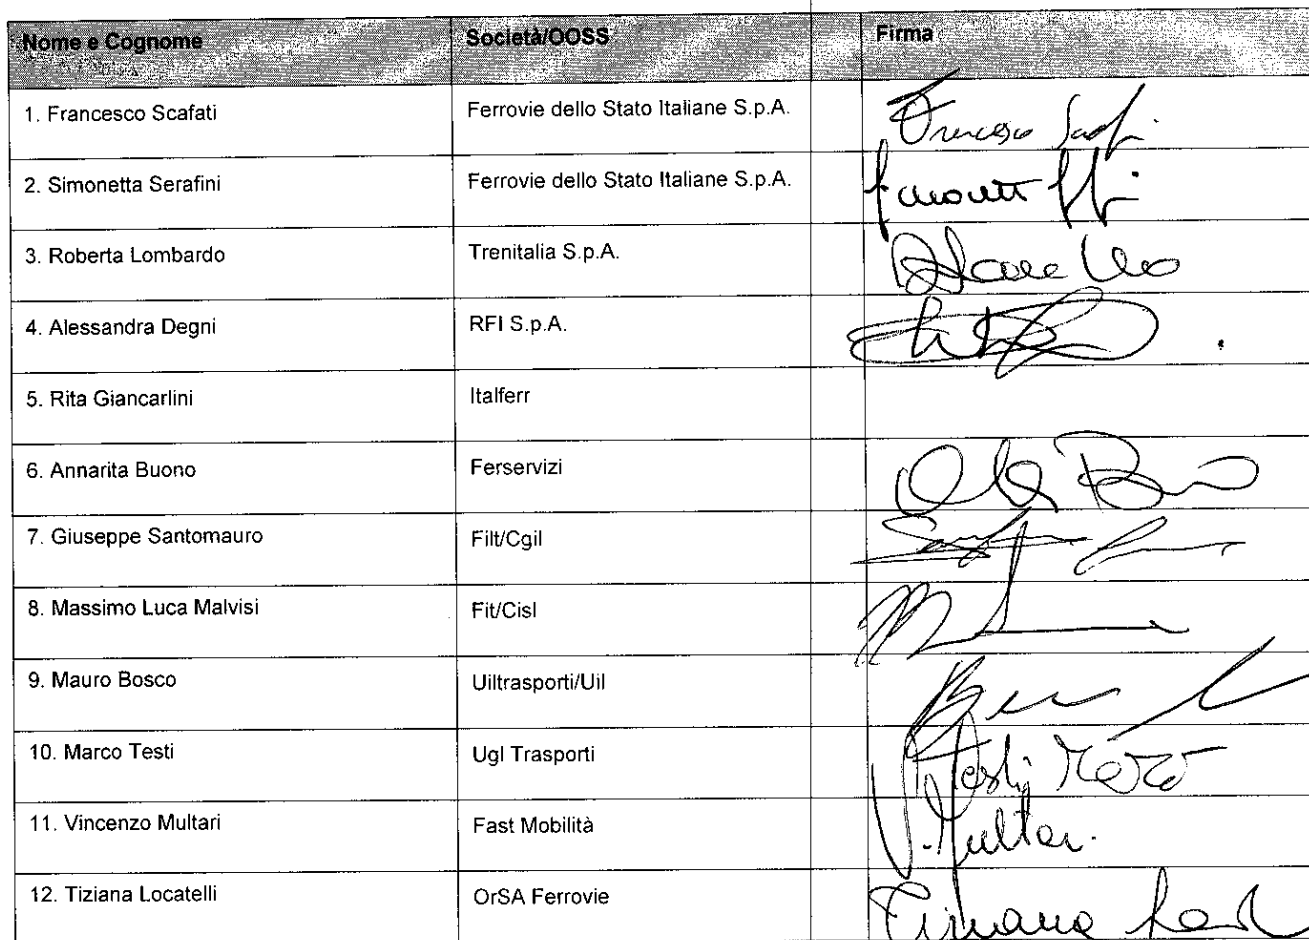 Nome e Cognome Società/OOSS Firma
1. Francesco Scafati Ferrovie dello Stato Italiane S.p.A. Francesco
2. Simonetta Serafini Ferrovie dello Stato Italiane S.p.A.
3. Roberta Lombardo Trenitalia S.p.A.
4. Alessandra Degni RFI S.p.A.
5. Rita Giancarlini Italferr
6. Annarita Buono Ferservizi
7. Giuseppe Santomauro Filt/Cgil
8. Massimo Luca Malvisi Fit/Cisl
9. Mauro Bosco Uiltrasporti/Uil
10. Marco Testi Ugl Trasporti Testi Marco
11. Vincenzo Multari Fast Mobilità
12. Tiziana Locatelli OrSA Ferrovie Tiziana